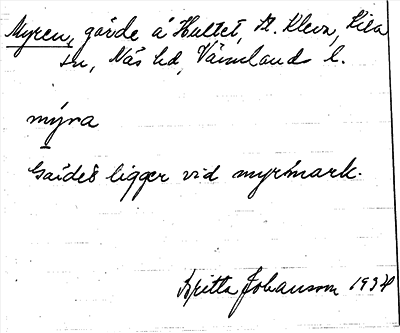 Myren, gärde å Hultet, St. Kleva, Kila
sn, Näs hd, Värmlands l.
myra
Gärdet ligger vid myrmark.
Britta Johansson